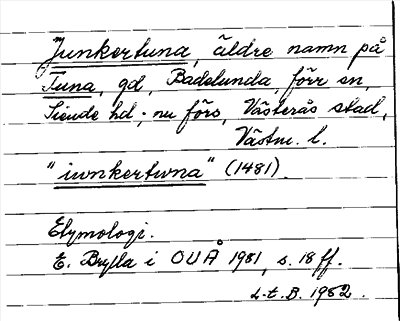 Junkertuna, äldre namn på
Tuna, gd, Badelunda, förr sn,
Siende hd; nu förs, Västerås stad,
Västm. l.
"iwnkertwna" (1481).
Etymologi.
E. Brylla i OUÅ 1981, s. 18 ff.
L-t. B. 1982.